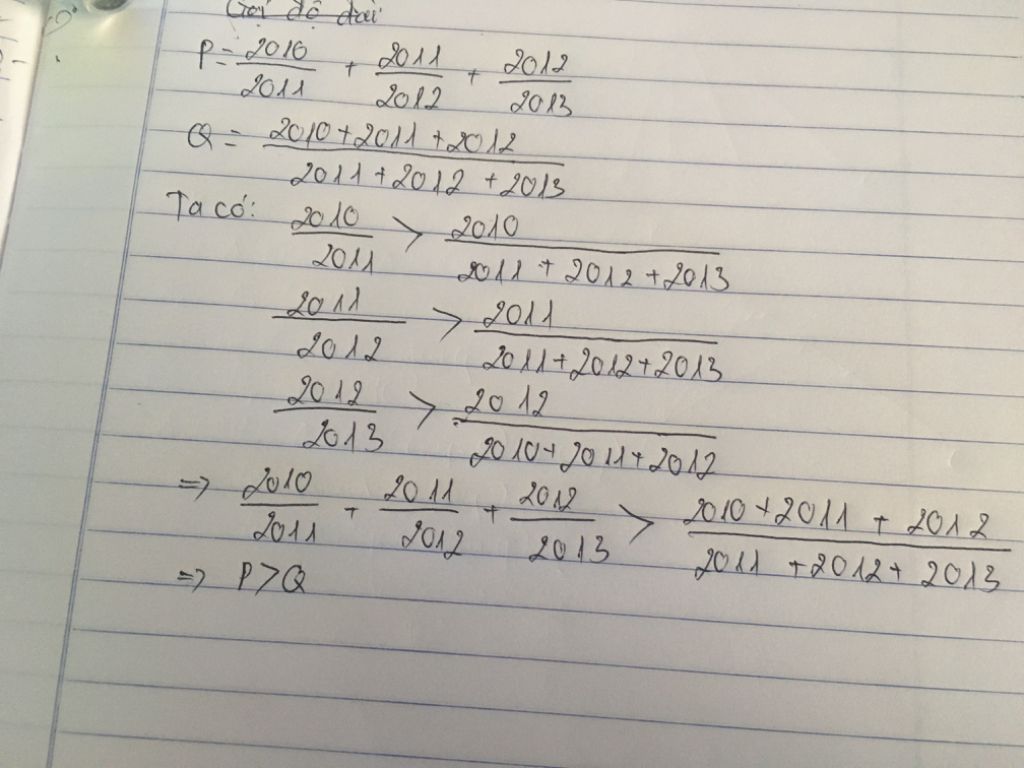 Gọi độ dài
P = 2010/2011 + 2011/2012 + 2012/2013
Q = (2010+2011+2012)/(2011+2012+2013)
Ta có: 2010/2011 > 2010/(2011+2012+2013)
2011/2012 > 2011/(2011+2012+2013)
2012/2013 > 2012/(2010+2011+2012)
=> 2010/2011 + 2011/2012 + 2012/2013 > (2010+2011+2012)/(2011+2012+2013)
=> P>Q